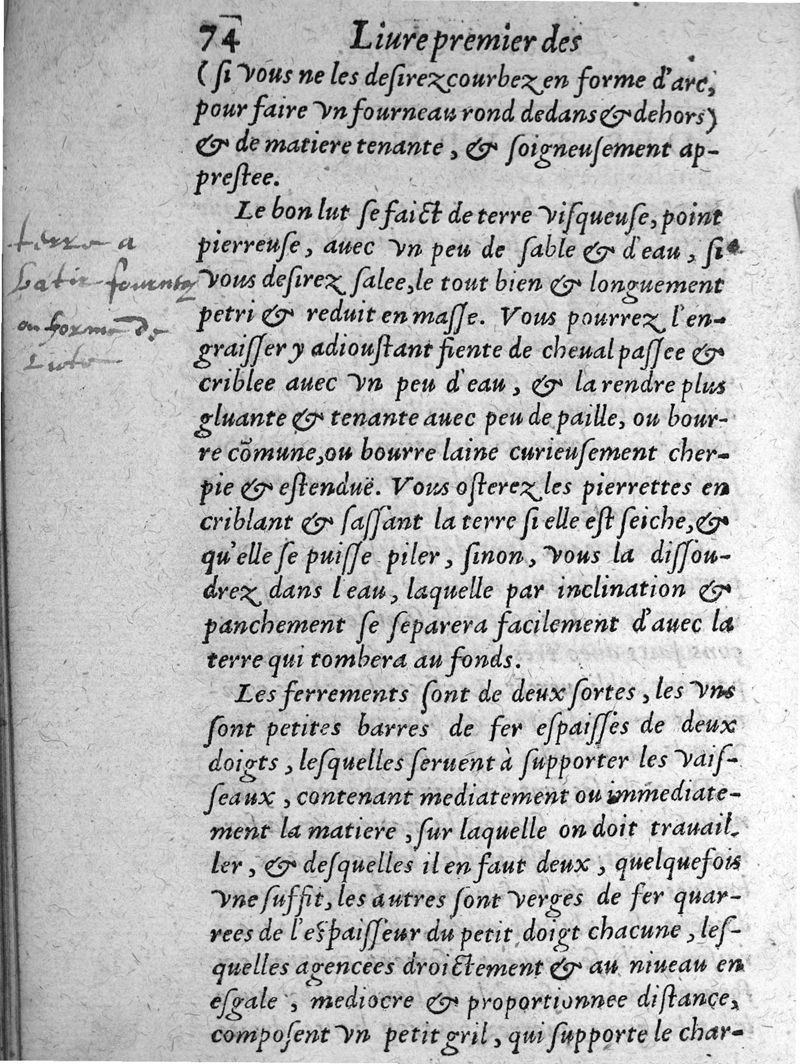 74 Liure premier des
(si vous ne les desirez courbez en forme d'arc,
pour faire vn fourneau rond dedans & dehors)
& de matiere tenante, & soigneusement ap-
prestee.
Le bon lut se faict de terre visqueuse, point
pierreuse, auec vn peu de sable & d'eau, si
vous desirez salee, le tout bien & longuement
petri & reduit en masse. Vous pourrez l'en-
graisser y adioustant fiente de cheual passee &
criblee auec vn peu d'eau, & la rendre plus
gluante & tenante auec peu de paille, ou bour-
re cõmune, ou bourre laine curieusement cher-
pie & estenduë. Vous osterez les pierrettes en
criblant & sassant la terre si elle est seiche, &
qu'elle se puisse piler, sinon, vous la dissou-
drez dans l'eau, laquelle par inclination &
panchement se separera facilement d'auec la
terre qui tombera au fonds.
Les ferrements sont de deux sortes, les vns
sont petites barres de fer espaisses de deux
doigts, lesquelles seruent à supporter les vais-
seaux, contenant mediatement ou immediate-
ment la matiere, sur laquelle on doit trauail-
ler, & desquelles il en faut deux, quelquefois
vne suffit, les autres sont verges de fer quar-
rees de l'espaisseur du petit doigt chacune, les-
quelles agencees droictement & au niueau en
esgale, mediocre & proportionnee distance,
composent vn petit gril, qui supporte le char-
terre a
batir
de